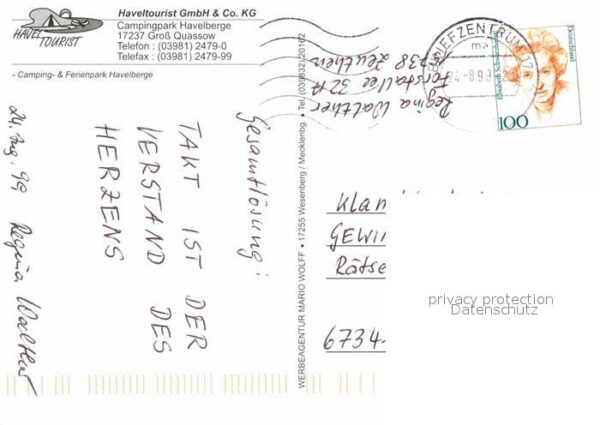 HAVEL
TOURIST
Haveltourist GmbH & Co. KG
Campingpark Havelberge
17237 Groß Quassow
Telefon : (03981) 2479-0
Telefax : (03981) 2479-99
- Camping- & Ferienpark Havelberge
24. Aug. 99 Regina Walther
Gesamtlösung:
TAKT IST DER
VERSTAND DES
HERZENS
WERBEAGENTUR MARIO WOLFF • 17255 Wesenberg / Mecklenbg. • Tel. (039832) 20162
Regina Walther
Forstallee 32A
15738 Zeuthen
BRIEFZENTRUM
24-8.99
Deutschland
100
Klan
GEWIN
Rätse
6734
privacy protection
Datenschutz